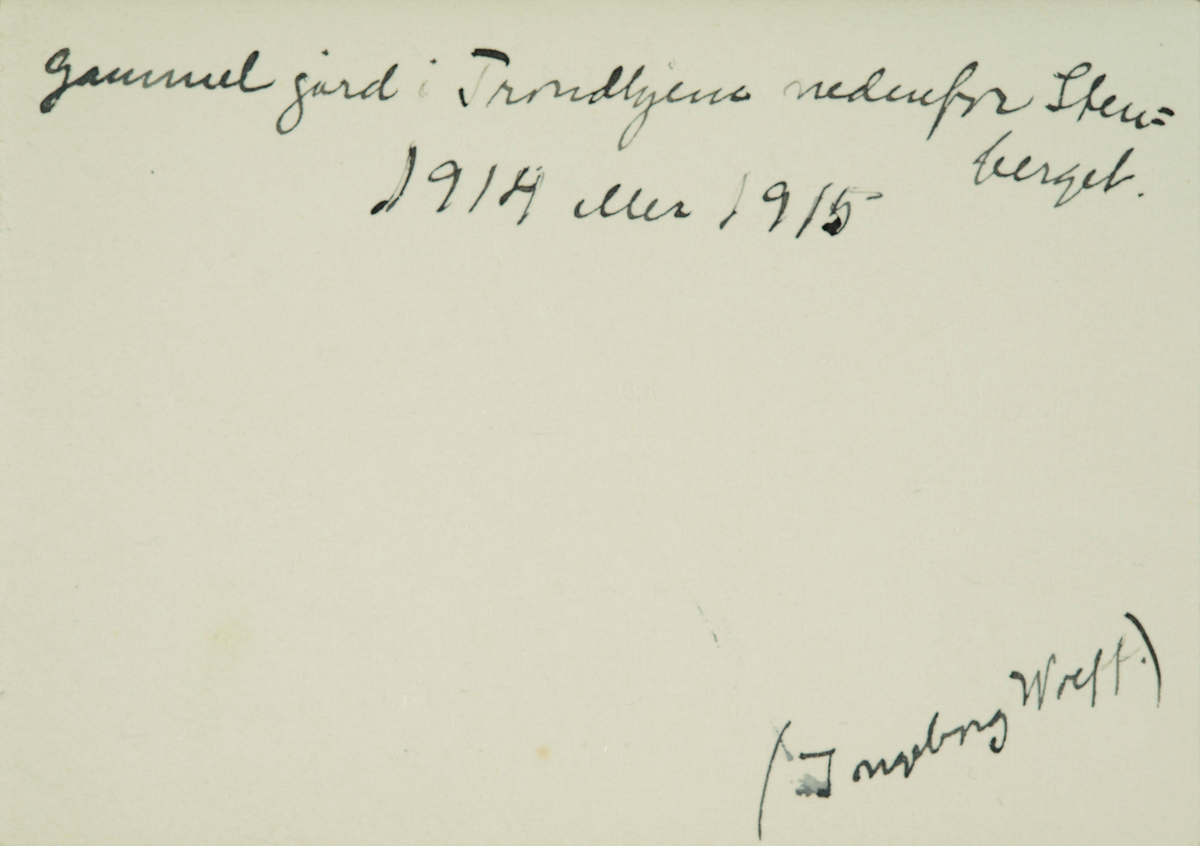 Gammel gård i Trondhjem nedenfor Sten=
berget.
1914 eller 1915
(Ingeborg Wolff.)